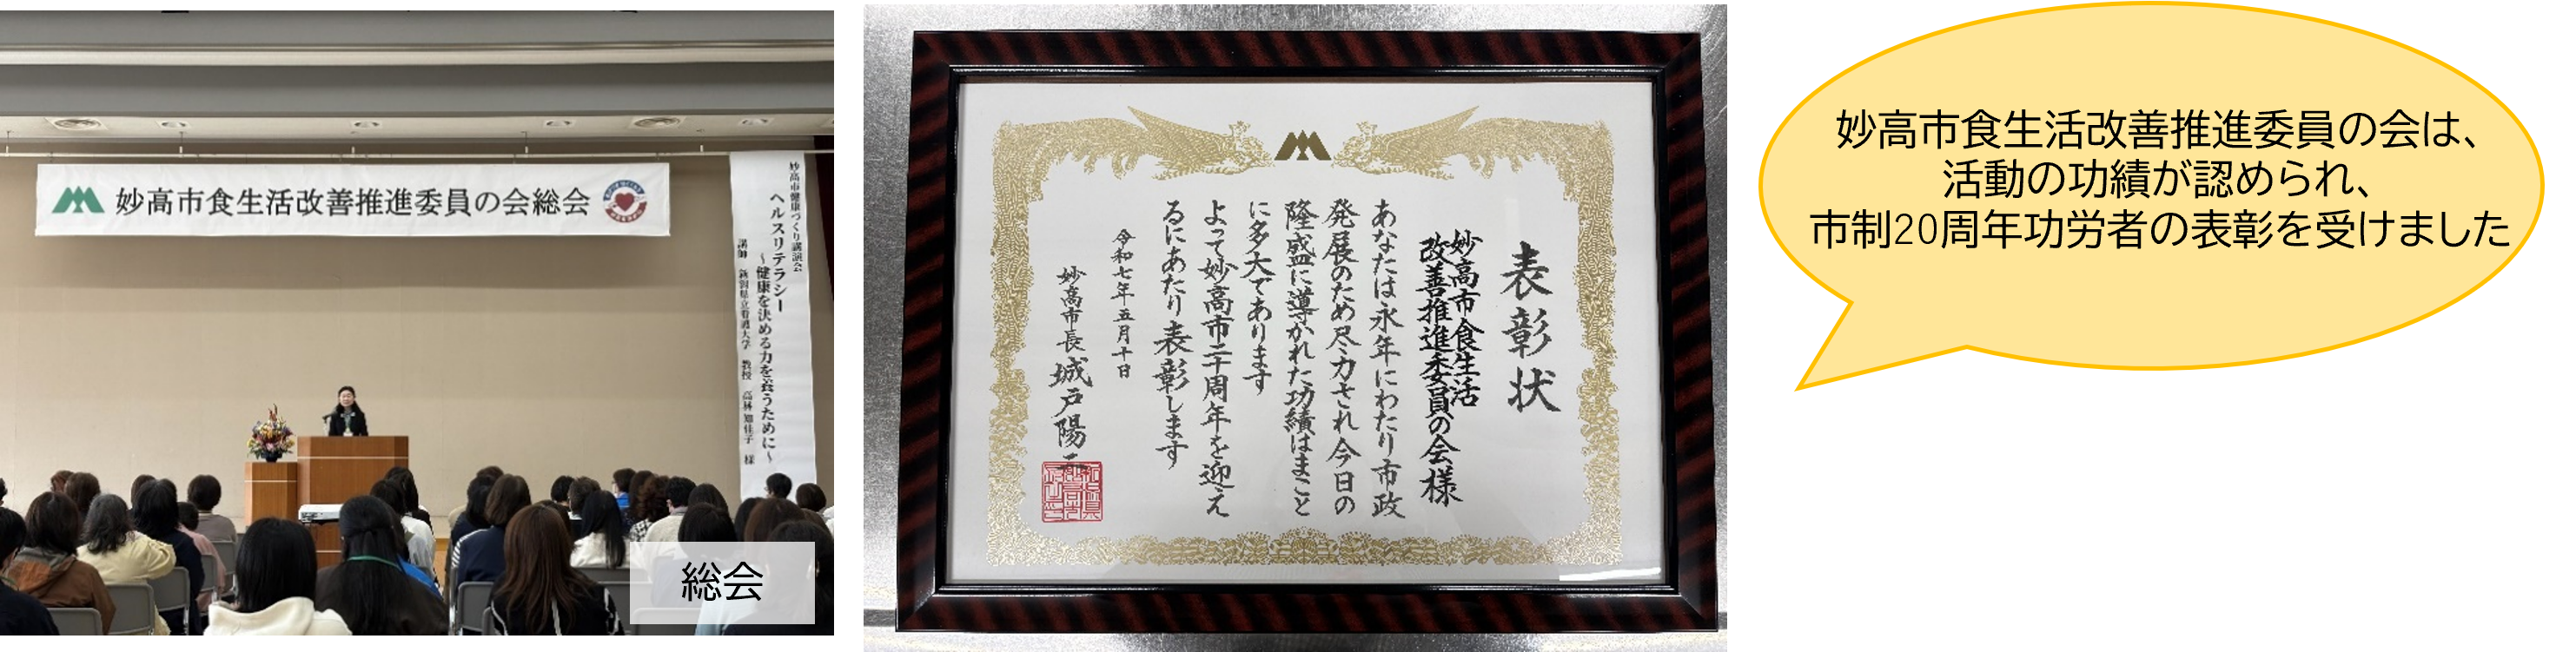 妙高市食生活改善推進委員の会総会
妙高市健康づくり講演会
ヘルスリテラシー
~健康を決める力を養うために~
講師 新潟県立看護大学 教授 高林知佳子 様
総会
表彰状
妙高市食生活
改善推進委員の会様
あなたは永年にわたり市政
発展のため尽力され今日の
隆盛に導かれた功績はまこと
に多大であります
よって妙高市二十周年を迎え
るにあたり表彰します
令和七年五月十日
妙高市長 城戸陽二
妙高市食生活改善推進委員の会は、
活動の功績が認められ、
市制20周年功労者の表彰を受けました